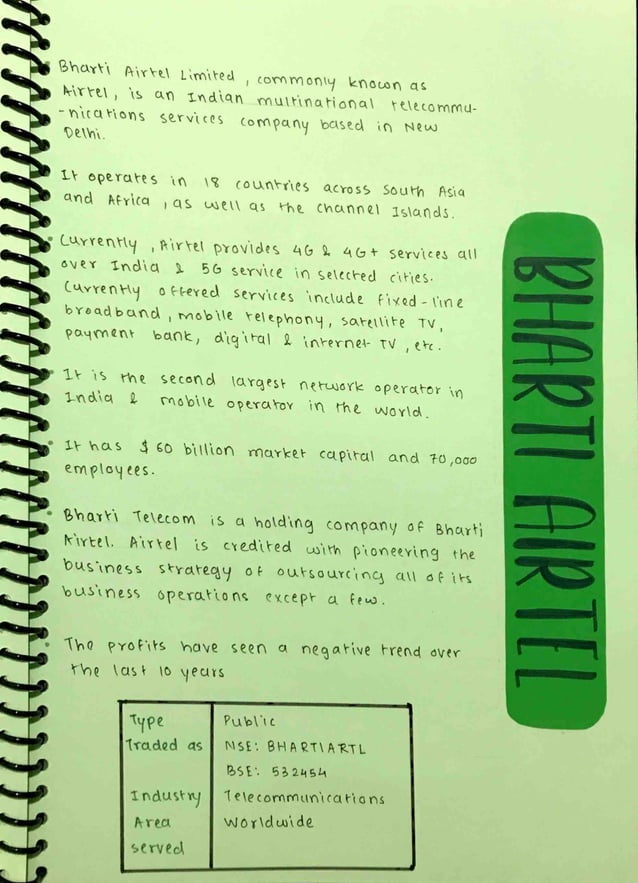 Bharti Airtel Limited, commonly known as
Airtel, is an Indian multinational telecommu-
-nications services company based in New
Delhi.
It operates in 18 countries across South Asia
and Africa, as well as the channel Islands.
Currently, Airtel provides 4G & 4G+ services all
over India & 5G service in selected cities.
Currently offered services include fixed-line
broadband, mobile telephony, satellite TV,
payment bank, digital & internet TV, etc.
It is the second largest network operator in
India & mobile operator in the world.
It has $60 billion market capital and 70,000
employees.
Bharti Telecom is a holding company of Bharti
Airtel. Airtel is credited with pioneering the
business strategy of outsourcing all of its
business operations except a few.
The profits have seen a negative trend over
the last 10 years
Type Public
Traded as NSE: BHARTIARTL
BSE: 532454
Industry Telecommunications
Area Worldwide
served
BHARTI AIRTEL